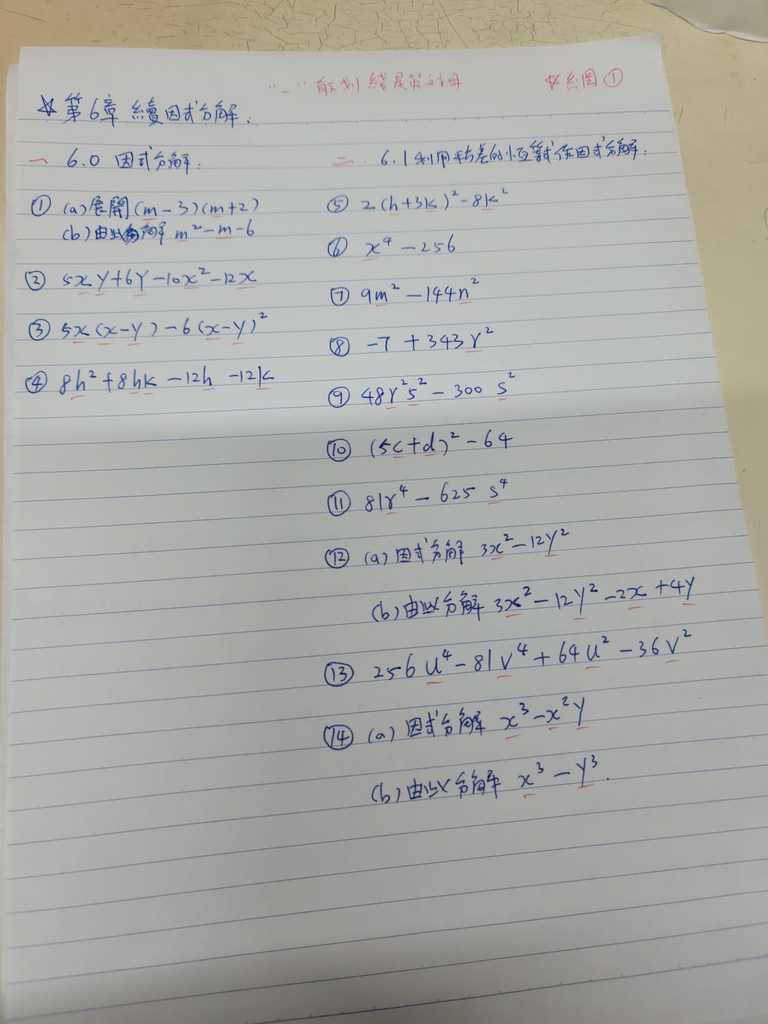 ☆第6章 續因式分解.
一 6.0 因式分解:
① (a)展開(m-3)(m+2)
(b)由此分解 m²-m-6
② 5xy+6y-10x²-12x
③ 5x(x-y)-6(x-y)²
④ 8h²+8hk-12h-12k
二 6.1利用平方差的恒等式作因式分解:
⑤ 2(h+3k)²-8k²
⑥ x⁴-256
⑦ 9m²-144n²
⑧ -7+343r²
⑨ 48r²s²-300s²
⑩ (5c+d)²-64
⑪ 81r⁴-625s⁴
⑫ (a)因式分解 3x²-12y²
(b)由此分解 3x²-12y²-2x+4y
⑬ 256u⁴-81v⁴+64u²-36v²
⑭ (a)因式分解 x³-x²y
(b)由此分解 x³-y³.